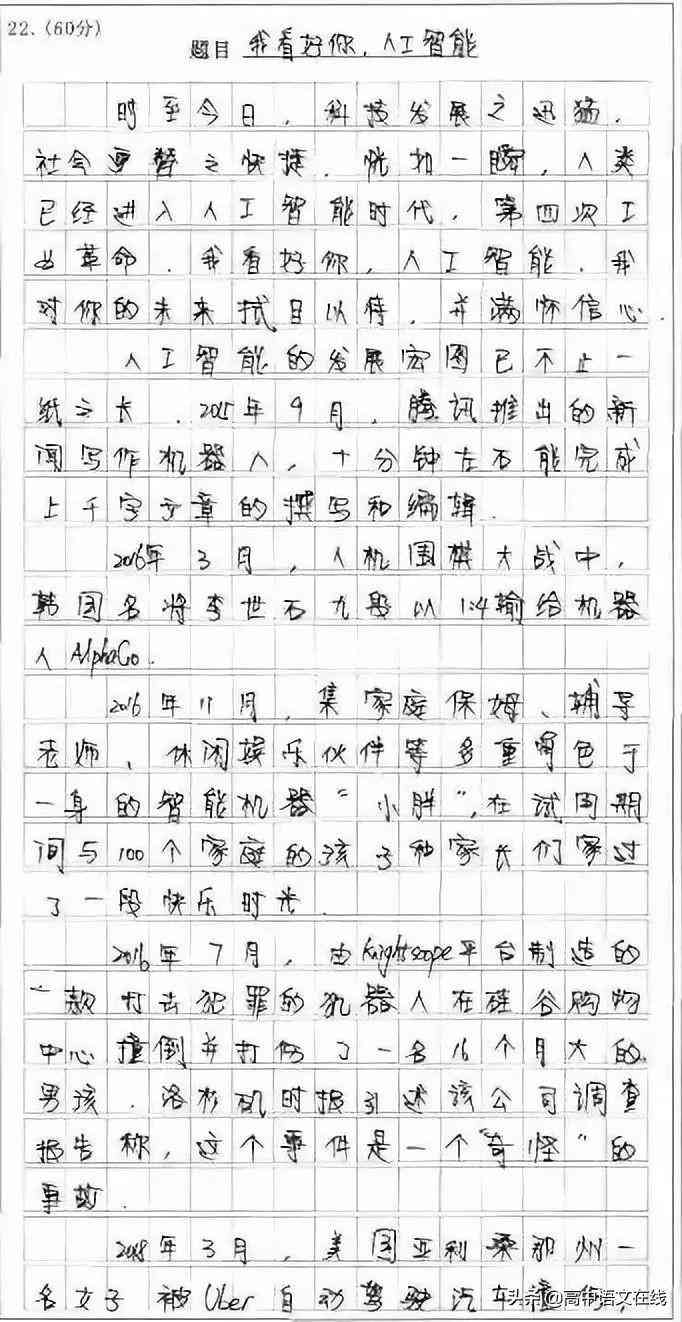 22.(60分)
题目 我看好你，人工智能
时至今日，科技发展之迅猛，
社会更替之快捷，恍如一瞬，人类
已经进入人工智能时代，第四次工
业革命．我看好你，人工智能．我
对你的未来拭目以待，并满怀信心．
人工智能的发展宏图已不止一
纸之长．2015年9月，腾讯推出的新
闻写作机器人，十分钟左右能完成
上千字文章的撰写和编辑．
2016年3月，人机围棋大战中，
韩国名将李世石九段以1:4输给机器
人AlphaGo．
2016年11月，集家庭保姆、辅导
老师、休闲娱乐伙伴等多重角色于
一身的智能机器“小胖”，在试用期
间与100个家庭的孩子和家长们家过
了一段快乐时光．
2016年7月，由Knightscope平台制造的
一款打击犯罪的机器人在硅谷购物
中心撞倒并打伤了一名16个月大的
男孩．洛杉矶时报引述该公司调查
报告称，这个事件是一个“奇怪”的
事故．
2018年3月，美国亚利桑那州一
名女子被Uber自动驾驶汽车撞伤，
头条@高中语文在线